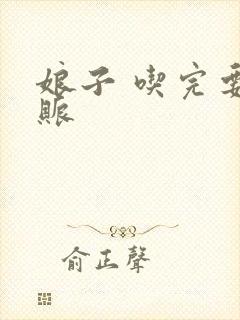 娘子 喫完要
賬
俞正聲